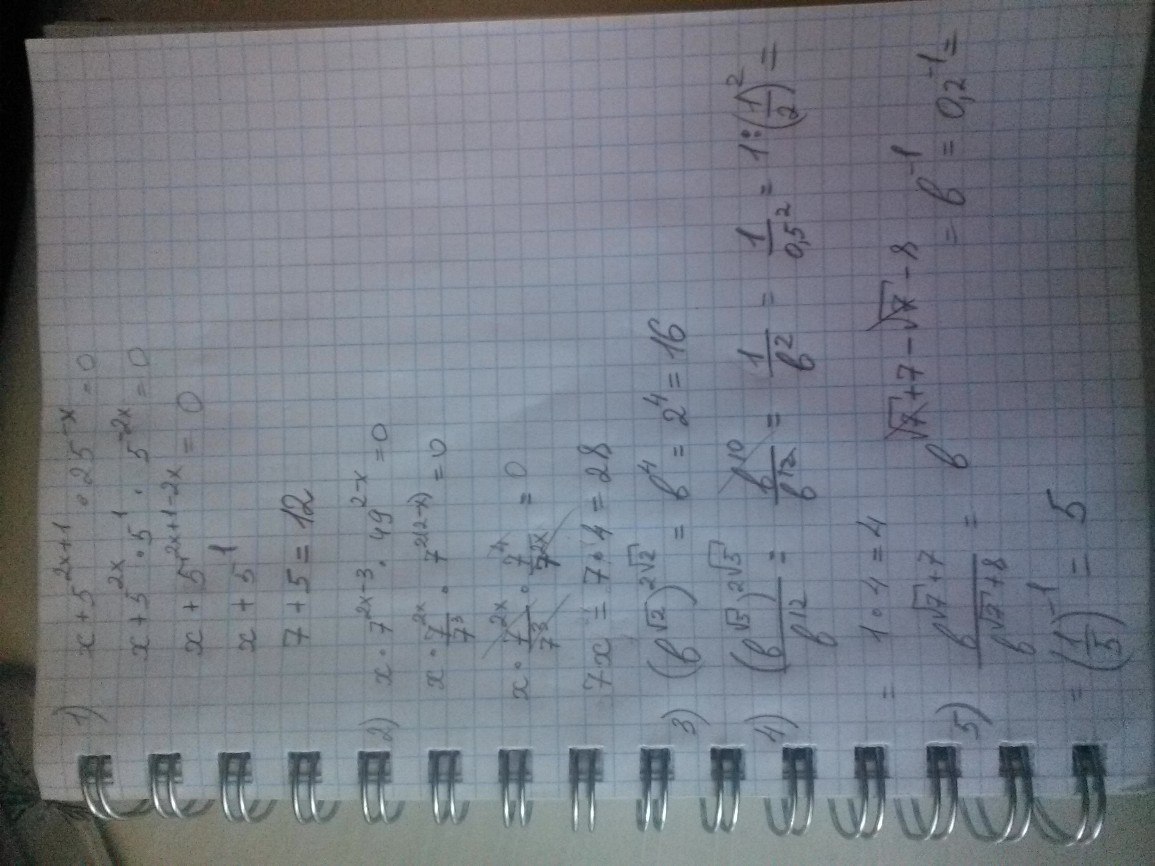 1) x + 5^{2x+1} · 25^{-x} = 0
x + 5^{2x} · 5^1 · 5^{-2x} = 0
x + 5^{2x+1-2x} = 0
x + 5^1
7 + 5 = 12
2) x · 7^{2x-3} · 49^{2-x} = 0
x · \frac{7^{2x}}{7^3} · 7^{2(2-x)} = 0
x · \frac{7^{2x}}{7^3} · \frac{7^4}{7^{2x}} = 0
7x = 7 · 4 = 28
3) (b^{\sqrt{2}})^{2\sqrt{2}} = b^4 = 2^4 = 16
4) \frac{(b^{\sqrt{5}})^{2\sqrt{5}}}{b^{12}} = \frac{b^{10}}{b^{12}} = \frac{1}{b^2} = \frac{1}{0,5^2} = 1 : (\frac{1}{2})^2 =
= 1 · 4 = 4
5) \frac{b^{\sqrt{7}+7}}{b^{\sqrt{7}+8}} = b^{\sqrt{7}+7-\sqrt{7}-8} = b^{-1} = 0,2^{-1} =
= (\frac{1}{5})^{-1} = 5